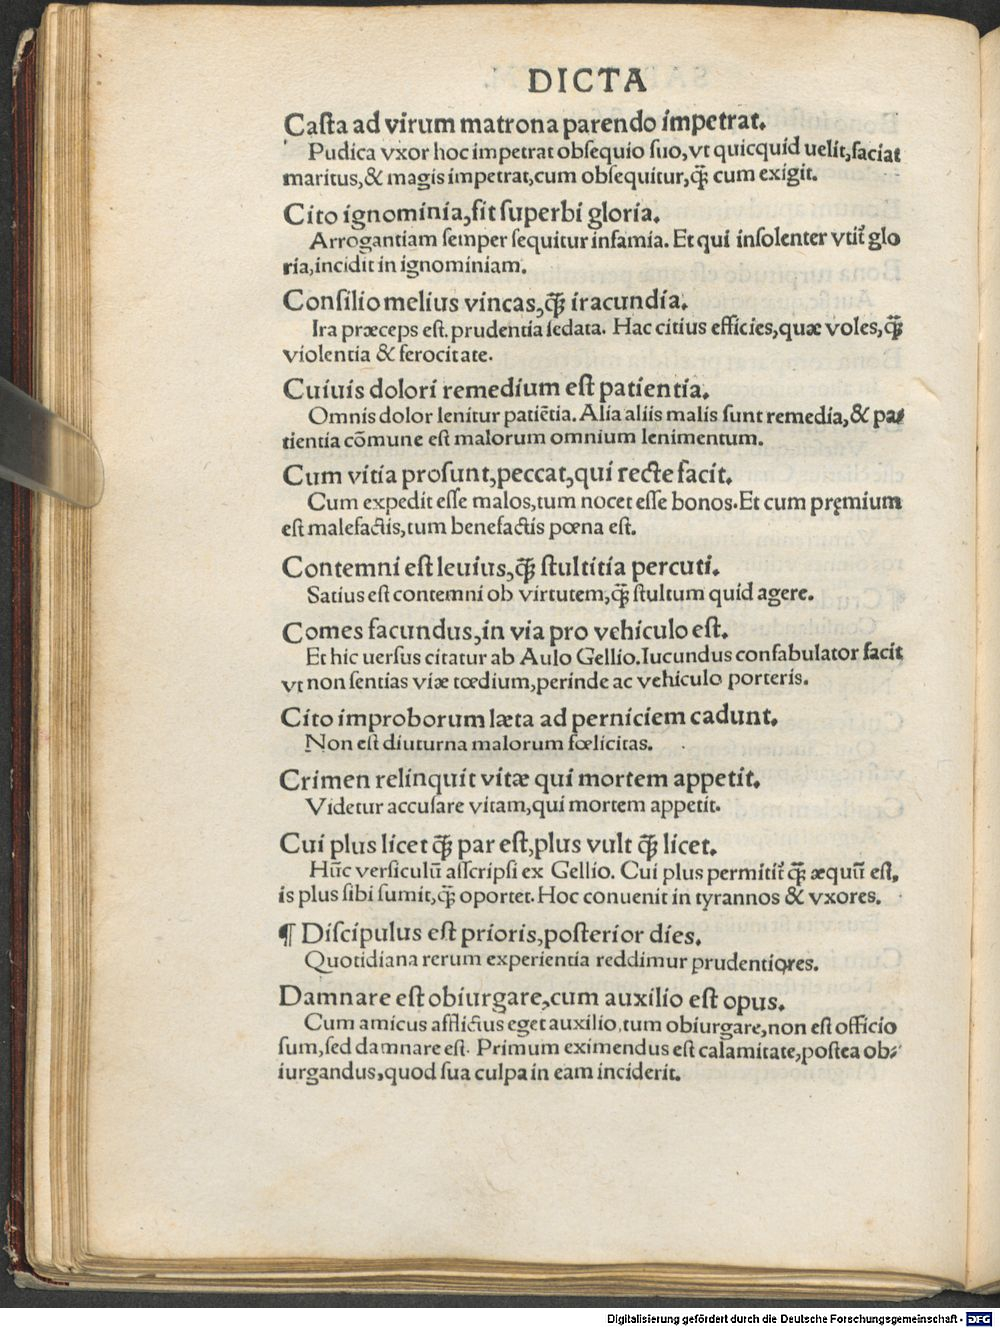 DICTA
Caſta ad virum matrona parendo impetrat.
Pudica vxor hoc impetrat obſequio ſuo, vt quicquid uelit, faciat
maritus, & magis impetrat, cum obſequitur, q̃ꝫ cum exigit.
Cito ignominia, fit ſuperbi gloria.
Arrogantiam ſemper ſequitur infamia. Et qui inſolenter vtit᷑ glo
ria, incidit in ignominiam.
Conſilio melius vincas, q̃ꝫ iracundia.
Ira præceps eſt. prudentia ſedata. Hac citius efficies, quæ voles, q̃ꝫ
violentia & ferocitate.
Cuiuis dolori remedium eſt patientia.
Omnis dolor lenitur patiẽtia. Alia aliis malis ſunt remedia, & pa⸗
tientia cõmune eſt malorum omnium lenimentum.
Cum vitia proſunt, peccat, qui recte facit.
Cum expedit eſſe malos, tum nocet eſſe bonos. Et cum pręmium
eſt malefactis, tum benefactis pœna eſt.
Contemni eſt leuius, q̃ꝫ ſtultitia percuti.
Satius eſt contemni ob virtutem, q̃ꝫ ſtultum quid agere.
Comes facundus, in via pro vehiculo eſt.
Et hic uerſus citatur ab Aulo Gellio. Iucundus confabulator facit
vt non ſentias viæ tœdium, perinde ac vehiculo porteris.
Cito improborum læta ad perniciem cadunt.
Non eſt diuturna malorum fœlicitas.
Crimen relinquit vitæ qui mortem appetit.
Videtur accuſare vitam, qui mortem appetit.
Cui plus licet q̃ꝫ par eſt, plus vult q̃ꝫ licet.
Hũc verſiculũ aſſcripſi ex Gellio. Cui plus permitit᷑ q̃ꝫ æquũ eſt,
is plus ſibi ſumit, q̃ꝫ oportet. Hoc conuenit in tyrannos & vxores.
¶ Diſcipulus eſt prioris, poſterior dies.
Quotidiana rerum experientia reddimur prudentiores.
Damnare eſt obiurgare, cum auxilio eſt opus.
Cum amicus afflictus eget auxilio, tum obiurgare, non eſt officio
ſum, ſed damnare eſt. Primum eximendus eſt calamitate, poſtea ob⸗
iurgandus, quod ſua culpa in eam inciderit.
Digitalisierung gefördert durch die Deutsche Forschungsgemeinschaft - DFG